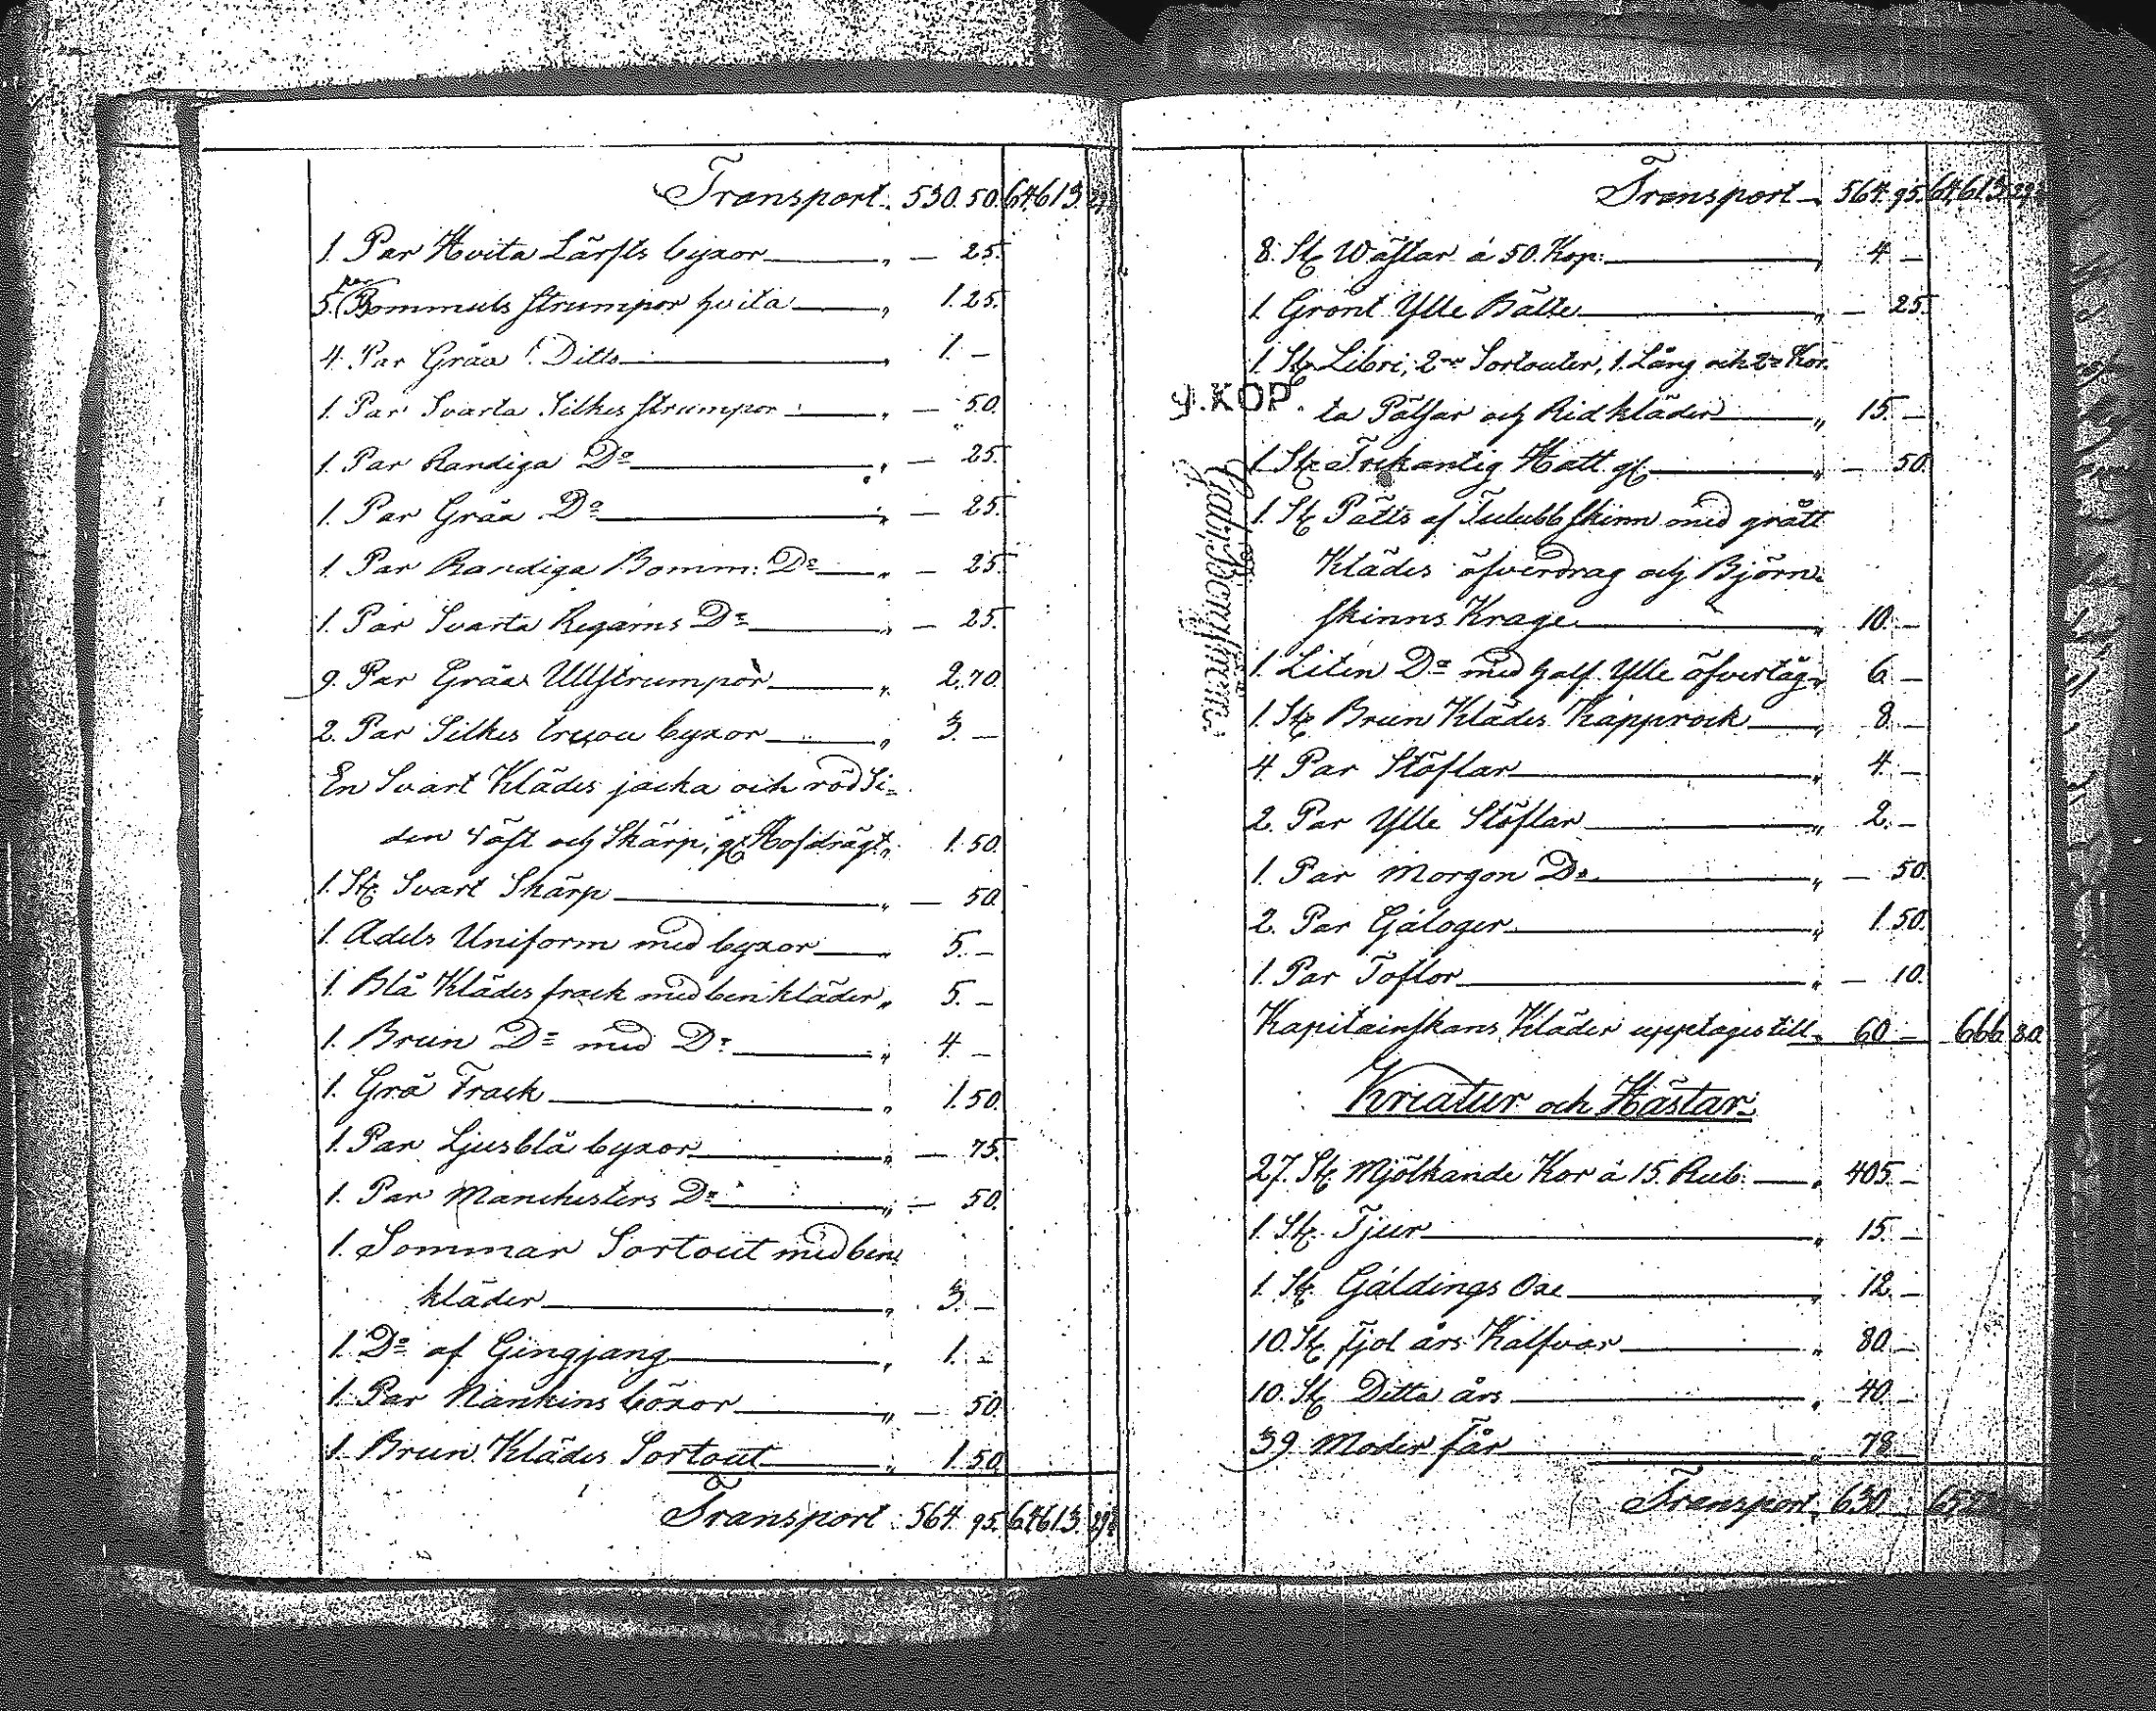 Transport 530. 50. 64613. 29
1. Par Hvita Lärfts byxor „ — 25.
par
5. Bommuls strumpor hvita „ 1. 25.
4. Par Gråa Ditto „ 1. —
1. Par Svarta Silkes strumpor „ — 50.
1. Par Randiga Do „ — 25.
1. Par Gråa Do „ — 25.
1. Par Randiga Bomm: Do „ — 25.
1. Par Svarta Regarns Do „ — 25.
9. Par Gråa Ullstrumpor „ 2. 70.
2. Par Silkes byxor „ 3. —
En Svart Klädes jacka och röd Si-
den väst och Skärp, gl Hofdrägt „ 1. 50.
1. St. Svart Skärp „ — 50.
1. Adels Uniform med byxor „ 5. —
1. Blå Klädes frack med benkläder „ 5. —
1. Brun Do med Do „ 4. —
1. Grå Frack „ 1. 50.
1. Par Ljusblå byxor „ — 75.
1. Par Manchesters Do „ — 50.
1. Sommar Sortout med ben-
kläder „ 3. —
1. Do af Gingjang „ 1. —
1. Par Nankins böxor „ — 50.
1. Brun Klädes Sortout „ 1. 50.
Transport 564. 95. 64613. 29
Transport 564. 95. 64,613. 29
8. St. Wästar á 50. Kop: „ 4 —
1. Grönt Ylle Bälte „ — 25.
1. St. Libri, 2ne Sortouter, 1. Lång och 2ne Kor-
ta Pälsar och Ridkläder „ 15. —
1. St. Trekantig Hatt gl. „ — 50.
1. St. Päls af Tulubbskinn med grått
Klädes öfverdrag och Björn-
skinns Krage „ 10. —
1. Liten Do med half Ylle öfvertåg „ 6 —
1. St. Brun Klädes Kapprock „ 8. —
4. Par Stöflar „ 4. —
2. Par Ylle Stöflar „ 2. —
1. Par Morgon Do „ — 50.
2. Par Galoger „ 1. 50.
1. Par Toflor „ — 10.
Kapitainskans Kläder upptages till „ 60 — 666 80
Kreatur och Hästar.
27. St. Mjölkande Kor á 15. Rub. „ 405. —
1. St. Tjur „ 15. —
1. St. Gäldings Oxe „ 12. —
10. St. fjol års Kalfvar „ 80. —
10. St. Ditta års „ 40. —
39 Moder får „ 78
Transport 630
9. KOP.